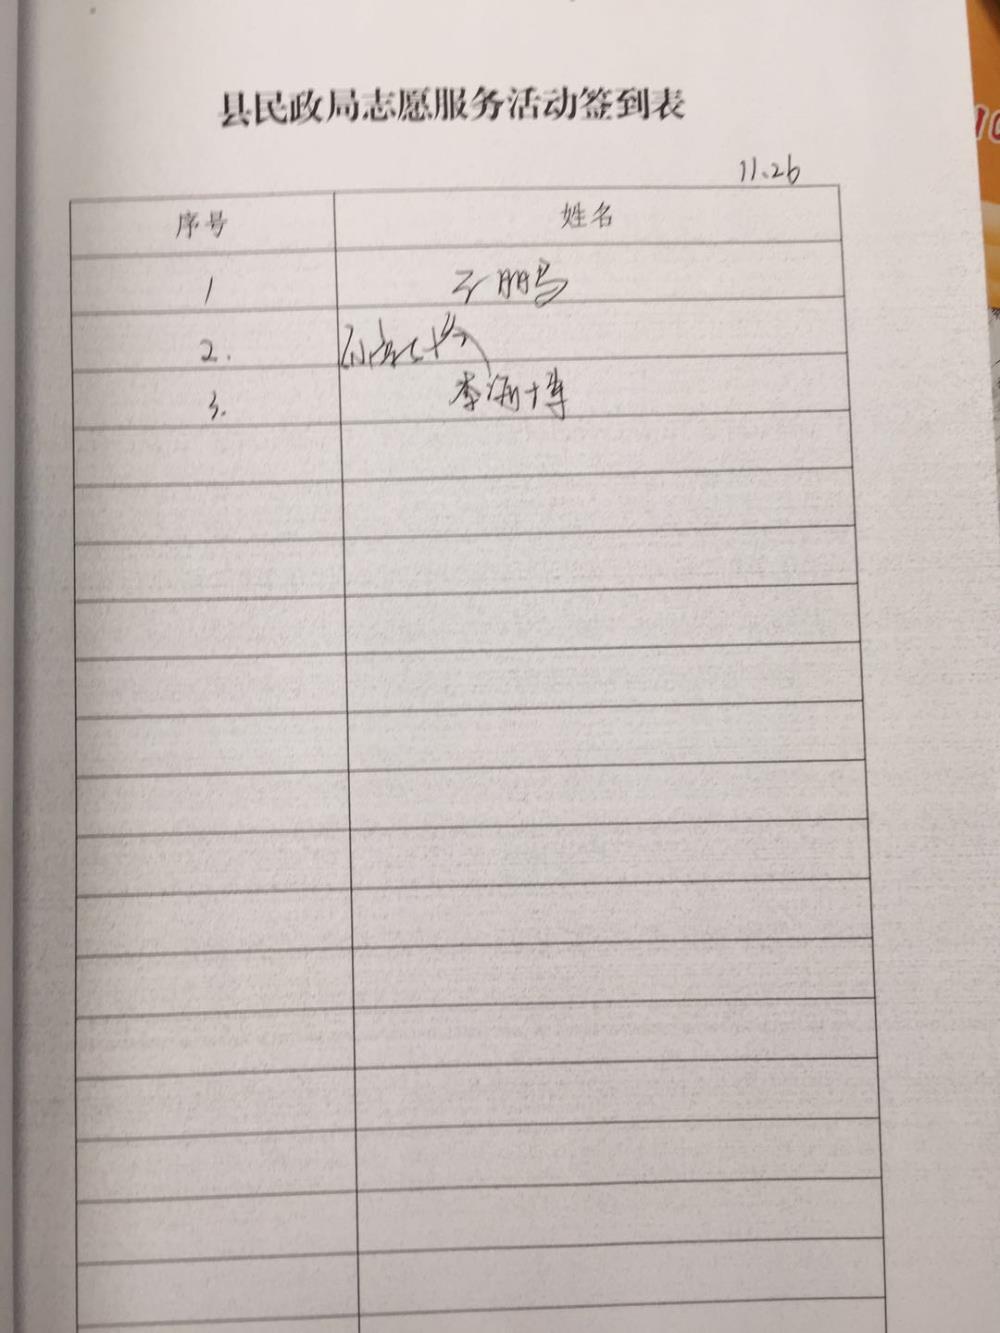 县民政局志愿服务活动签到表
11.26
序号 姓名
1
2.
3. 李海博
10